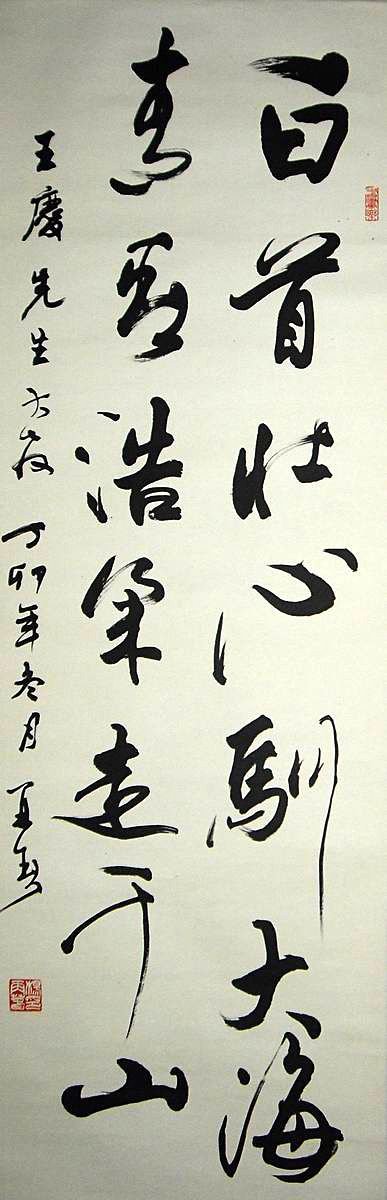 白首壮心馴大海
青春浩氣走千山
王慶先生 丁卯年冬月